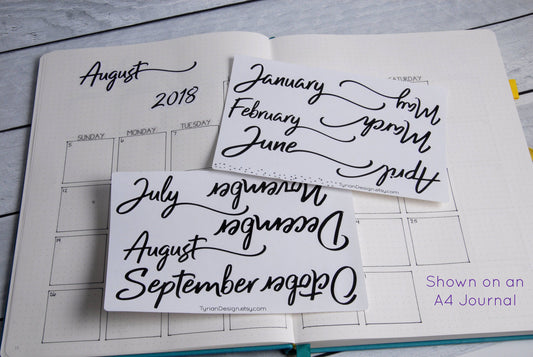 August
2018
SUNDAY
MONDAY
SATURDAY
5
6
7
12
19
25
26
January
February
June
May
March
April
TyrianDesign.etsy.com
July
August
September
November
December
October
TyrianDesign.etsy.com
Shown on an
A4 Journal